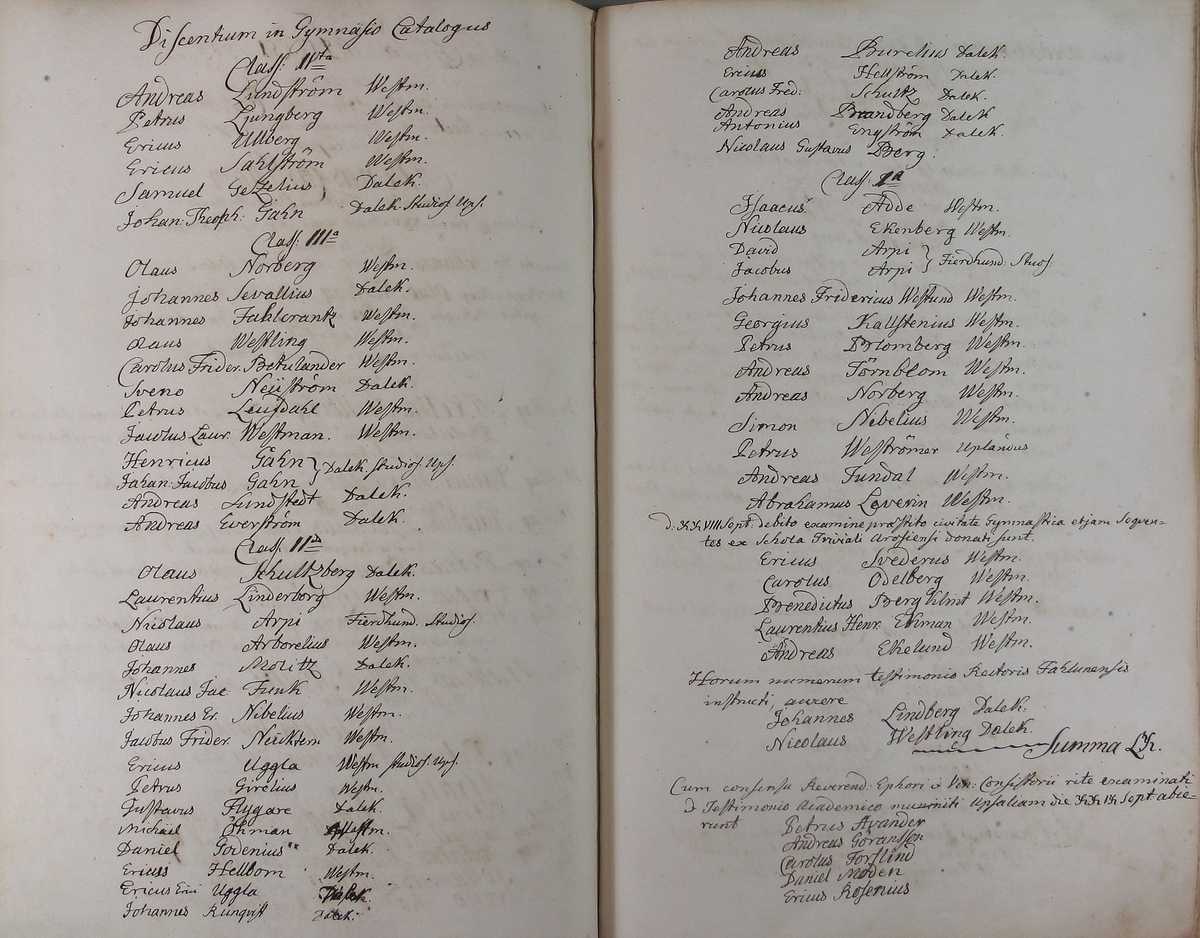 Discentium in Gymnasio Catalogus
Class: IVta
Andreas Lundström Westm.
Petrus Ljungberg Westm.
Ericus Ullberg Westm.
Ericus Sahlström Westm.
Samuel Gezelius Dalek.
Johan: Theoph: Gahn Dalek. Studios. Ups.
Class: IIIa
Olaus Norberg Westm.
Johannes Sevallius Dalek.
Johannes Fahlcrantz Westm.
Olaus Westling Westm.
Carolus Frider. Betulander Westm.
Sveno Neüström Dalek.
Petrus Leufdahl Westm.
Jacobus Laur. Westman. Westm.
Henricus Gahn } Dalek. Studios. Ups.
Johan: Jacobus Gahn
Andreas Lundstedt Dalek.
Andreas Everström Dalek.
Class: IIda
Olaus Schultzberg Dalek.
Laurentius Linderborg Westm.
Nicolaus Arpi Fierdhund. Studios.
Olaus Arborelius Westm.
Johannes Molitz Dalek.
Nicolaus Jac. Funk Westm.
Johannes Er. Nibelius Westm.
Jacobus Frider. Westm.
Ericus Uggla Westm Studios. Ups.
Petrus Westm.
Gustavus Flygare Dalek.
Michael Öhman Westm.
Daniel Dalek.
Ericus Hellbom Westm.
Ericus Eric Uggla Dalek.
Johannes Runqvist Dalek.
Andreas Burelius Dalek.
Ericus Hellström Dalek.
Carolus Fred: Schultz Dalek.
Andreas Brandberg Dalek
Antonius Engström Dalek.
Nicolaus Gustavus Berg.
Class. Ia
Isaacus Adde Westm.
Nicolaus Ekenberg Westm.
David Arpi } Fierdhund. Stuos.
Jacobus Arpi
Johannes Fridericus Westlund Westm.
Georgius Kallstenius Westm.
Petrus Blomberg Westm.
Andreas Törnblom Westm.
Andreas Norberg Westm.
Simon Nibelius Westm.
Petrus Weströmer Uplandus
Andreas Fundal Westm.
Abrahamus Leverin Westm.
d. XXVIII Sept. debito examine præstito civitate Gymnastica etjam Sequen-
tes ex Schola Triviali Arosiensi donati sunt.
Ericus Svederus Westm.
Carolus Odelberg Westm.
Benedictus Bergholmt Westm.
Laurentius Henr. Ekman Westm.
Andreas Ekelund Westm.
Horum numerum testimonio Rectoris Fahlunensis
instructi, auxere
Johannes Lindberg Dalek.
Nicolaus Westling Dalek.
Summa LX.
Cum consensu Reverend. Ephori & Ven: Consistorii rite examinati
& Testimonio Academico muniti Upsaliam die XXIX Sept abie-
runt
Petrus Avander
Andreas Göransson
Carolus Forslind
Daniel Moden
Ericus Rosenius